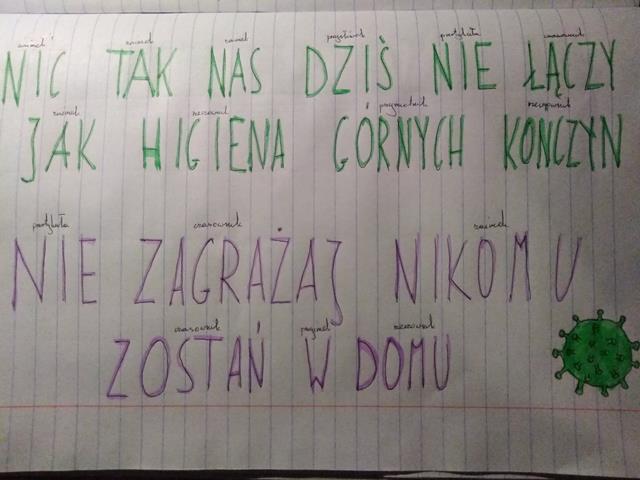 zaimek zaimek zaimek przysłówek partykuła czasownik
NIC TAK NAS DZIŚ NIE ŁĄCZY
zaimek rzeczownik przymiotnik rzeczownik
JAK HIGIENA GÓRNYCH KOŃCZYN
partykuła czasownik zaimek
NIE ZAGRAŻAJ NIKOMU
czasownik przyimek rzeczownik
ZOSTAŃ W DOMU